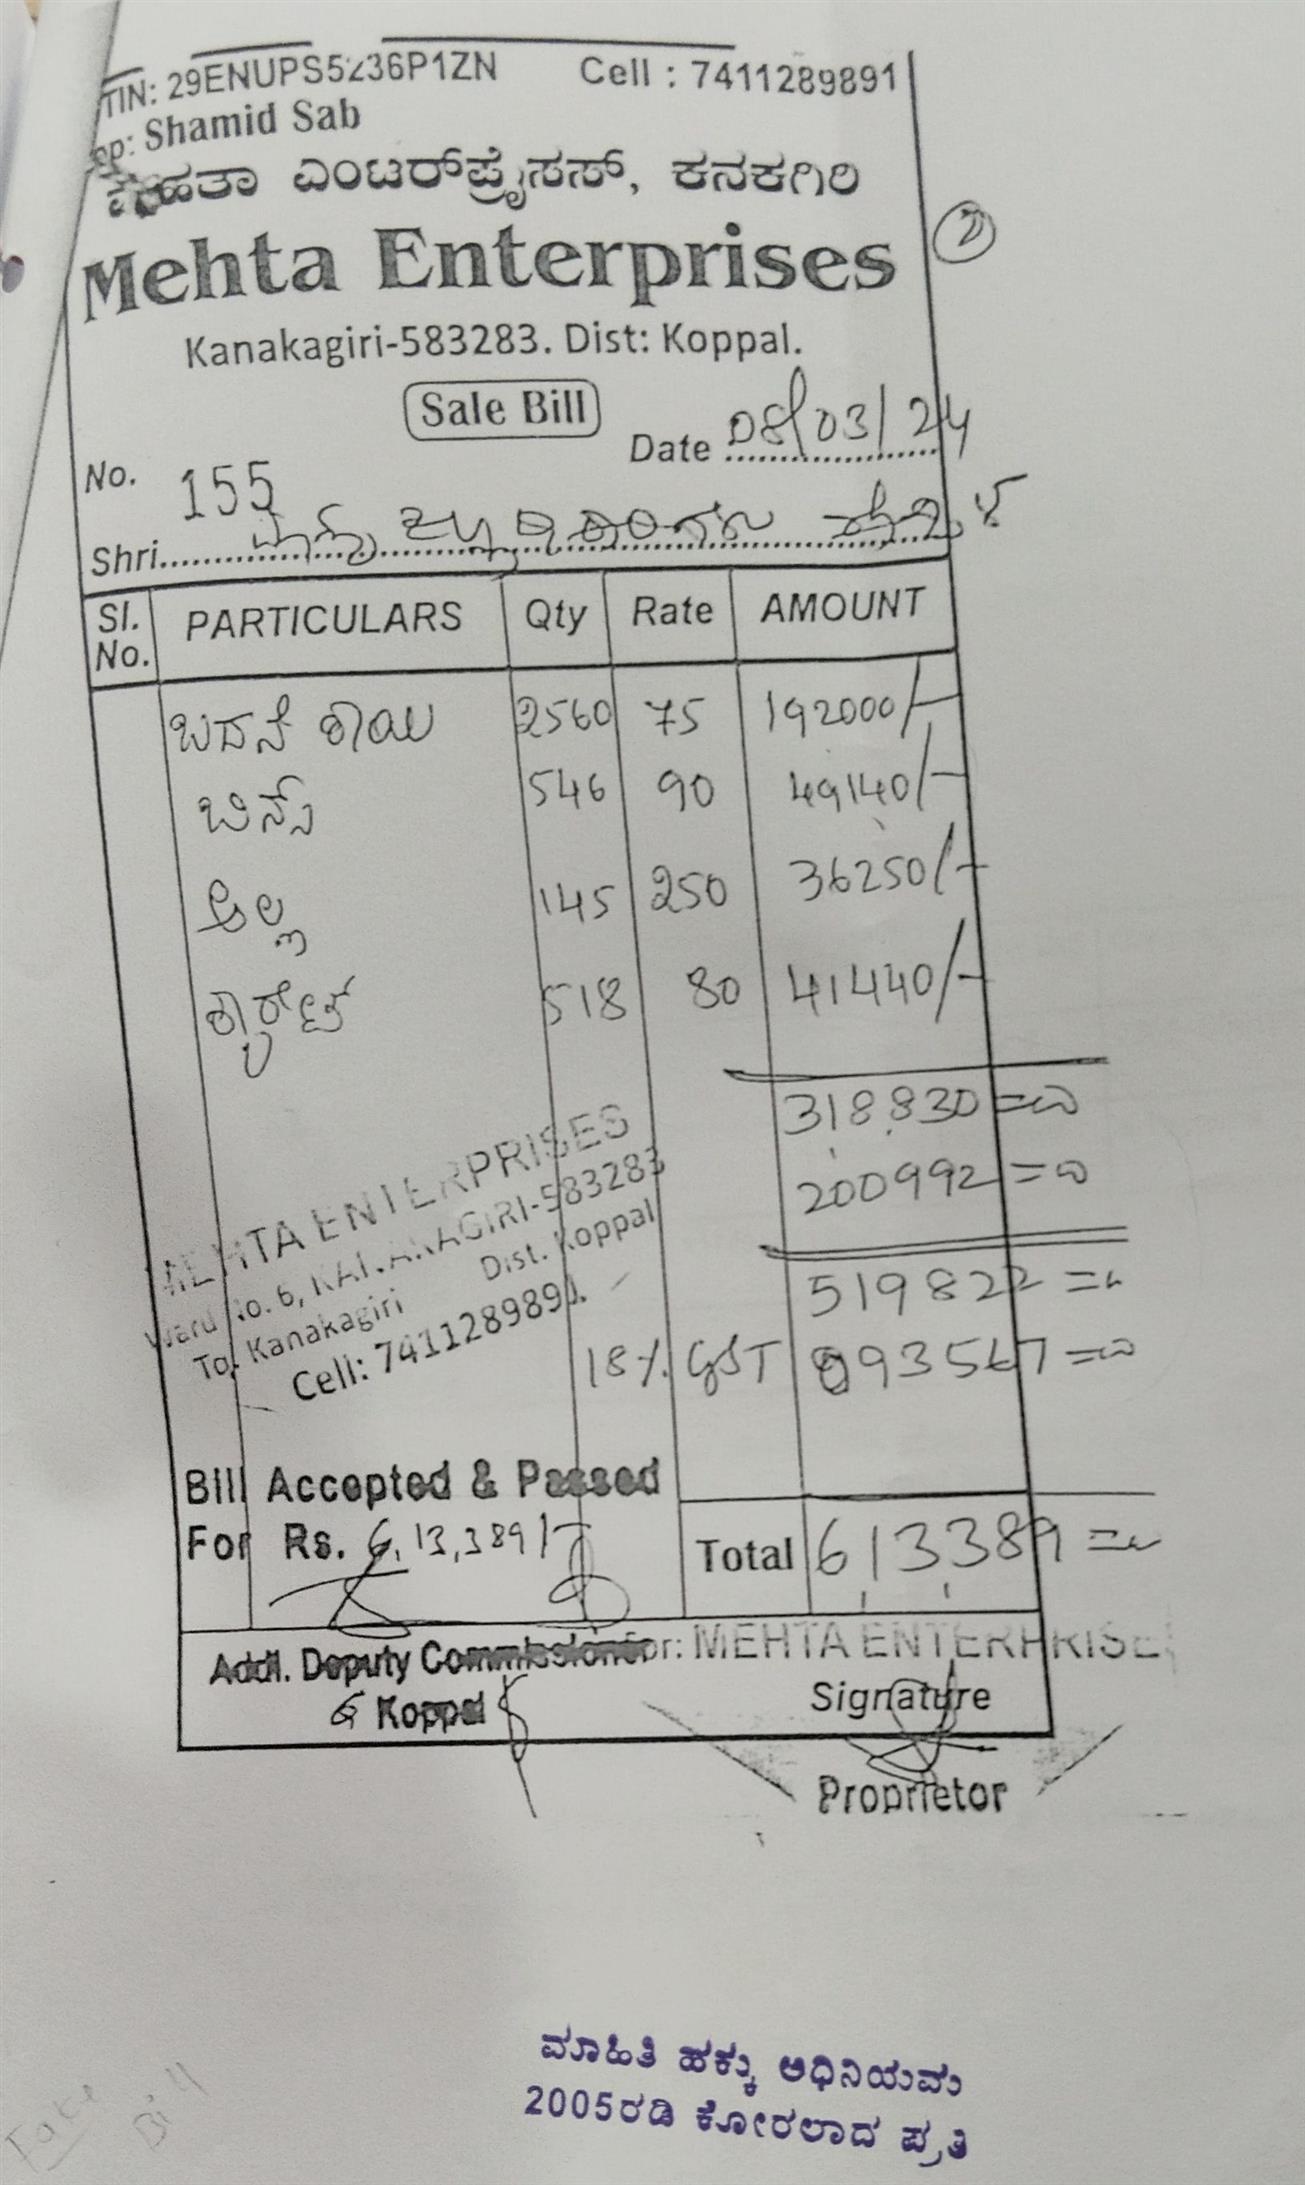 TIN: 29ENUPS5236P1ZN Cell : 7411289891
op: Shamid Sab
ಮೆಹತಾ ಎಂಟರ್‌ಪ್ರೈಸಸ್, ಕನಕಗಿರಿ
Mehta Enterprises
2
Kanakagiri-583283. Dist: Koppal.
Sale Bill
Date 08/03/24
No. 155
Shri ಮಾನ್ಯ ಜಿಲ್ಲಾಧಿಕಾರಿಗಳು ಕೊಪ್ಪಳ
Sl. No. PARTICULARS Qty Rate AMOUNT
ಬದನೆ ಕಾಯಿ 2560 75 192000/-
ಬಿನ್ಸ್ 546 90 49140/-
ಅಲ್ಲ 145 250 36250/-
ಕ್ಯಾರೇಟ್ 518 80 41440/-
318830=00
200992=00
519822=00
18% GST 93567=00
MEHTA ENTERPRISES
Ward No. 6, KANAKAGIRI-583283
Tq. Kanakagiri Dist. Koppal
Cell: 7411289891.
Bill Accepted & Passed
For Rs. 6,13,389/-
Total 613389=00
Addl. Deputy Commissioner
Koppal
For: MEHTA ENTERPRISE
Signature
Proprietor
ಮಾಹಿತಿ ಹಕ್ಕು ಅಧಿನಿಯಮ
2005ರಡಿ ಕೋರಲಾದ ಪ್ರತಿ
Fake
Bill